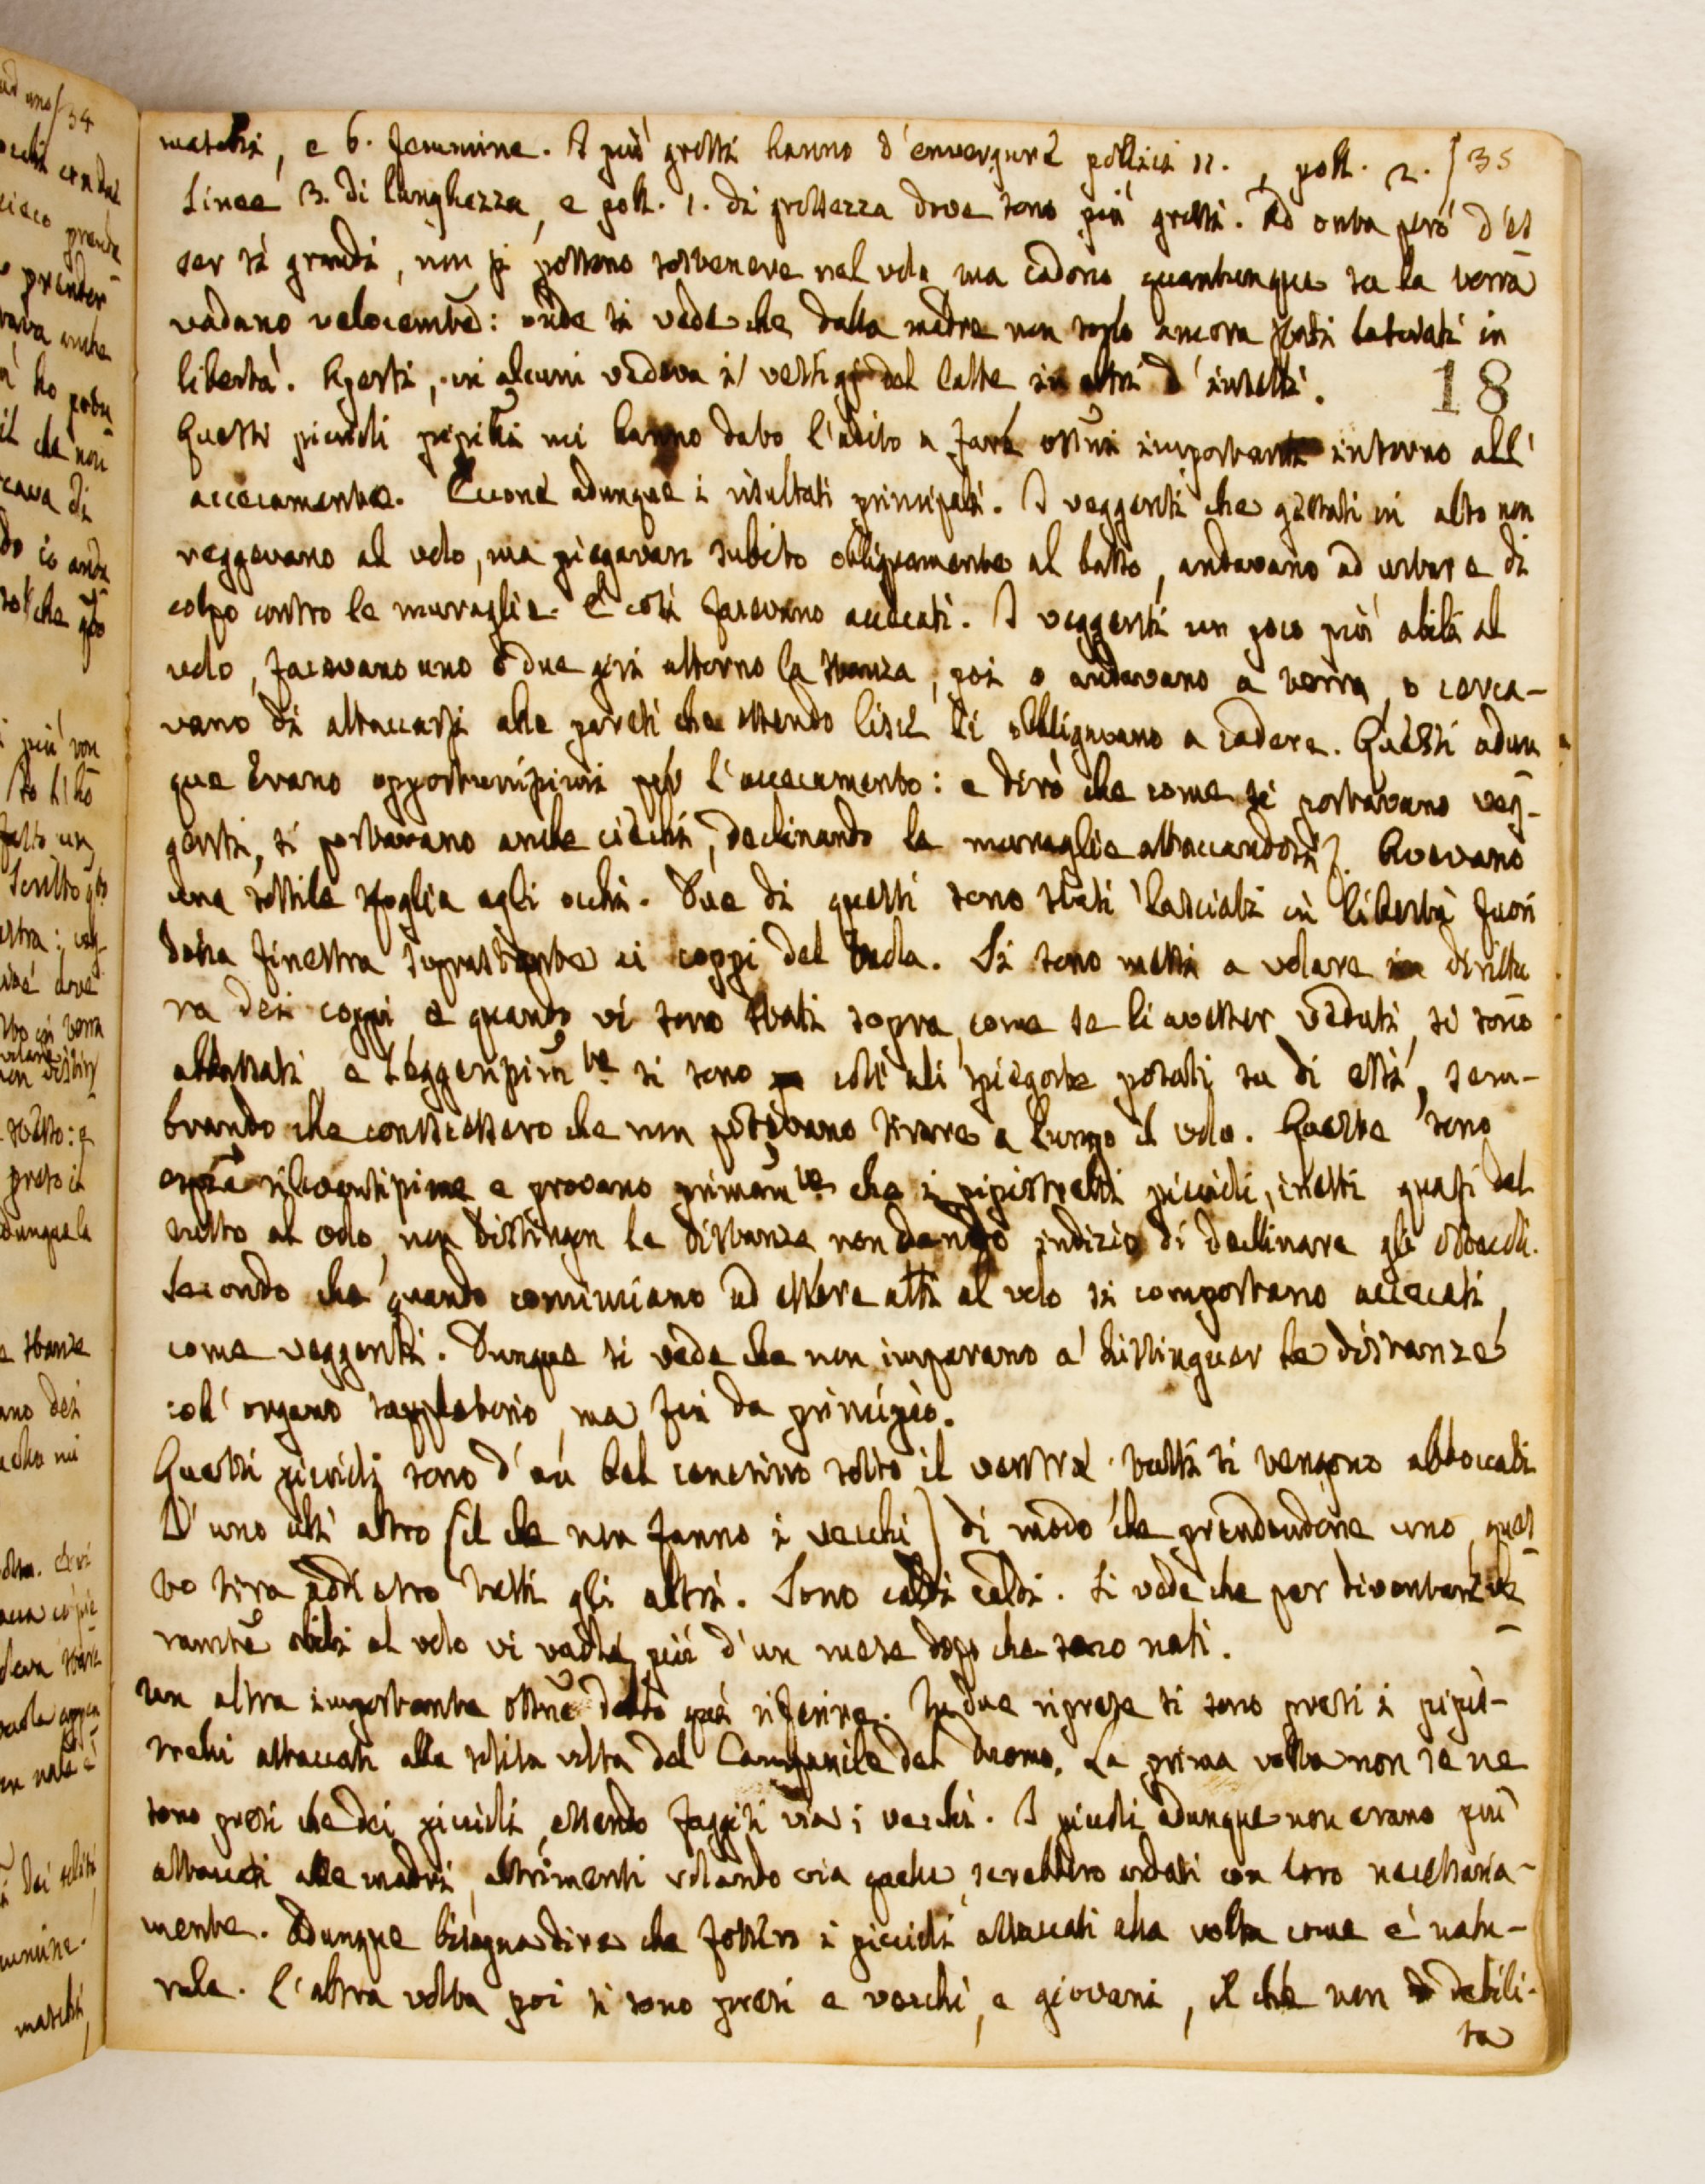 maschi, e 6. femmine. I più grossi hanno d'envergure pollici 11., poll. 2. 35
linee 3. di lunghezza, e poll. 1. di grossezza dove sono più grossi. Ad onta però d'es
ser sì grandi, non si possono sostenere nel volo, ma cadono quantunque su la terra
vadano velocemte: onde si vede che dalla madre non sono ancora stati lasciati in
libertà. Aperti, in alcuni vedeva i vestigj del latte, in altri d'insetti. 18
Questi piccioli mi hanno dato l'adito a fare importanti intorno all'
accecamento. Eccone adunque i risultati principali. I veggenti che gittati in alto non
reggevano al volo, ma piegavan subito obliquamente al basso, andavano ad urtare di
colpo contro le muraglie. E così facevano accecati. I veggenti un poco più abili al
volo, facevano uno o due giri attorno la stanza, poi o andavano a terra, o cerca-
vano di attaccarsi alle pareti che essendo liscie li obbligavano a cadere. Questi adun
que erano opportunissimi per l'accecamento: e dirò che come si portavano veg-
genti, si portavano anche ciechi, declinando le muraglie attaccandosi Avevano
una sottile sfoglia agli occhi. Due di questi sono stati lasciati in libertà fuori
della finestra soprastante ai coppi del . Si sono messi a volare in dirittu
ra dei coppi e quando vi sono stati sopra, come se li avesser veduti, si sono
abbassati, e leggerissim te si sono coll'ali spiegate posati su di essi, sem-
brando che conoscessero che non potevano tirare a lungo il volo. Queste sono
e provano primam te che i pipistrelli piccioli, inetti quasi del
tutto al volo, non distinguon le distanze non dando indizio di declinare gli ostacoli.
Secondo che quando cominciano ad essere atti al volo si comportano accecati,
come veggenti. Dunque si vede che non imparano a distinguer le distanze
coll'organo suppletorio, ma fin da principio.
Questi piccioli sono d'un bel cenerino sotto il ventre. tutti si tengono abboccati
l'uno all'altro (il che non fanno i vecchi) di modo che prendendone uno, ques
to tira addietro tutti gli altri. Sono caldi caldi. Si vede che per diventare ve
ramte abili al volo vi vuole più d'un mese dopo che sono nati.
Un altra importante ossne debbo quì riferire. In due riprese si sono presi i pipis-
trelli attaccati alla solita volta del Campanile del Duomo. La prima volta non se ne
sono presi che dei piccioli, essendo faggiti via i vecchi. I piccioli adunque non erano più
attaccati alle madri, altrimenti volando via queste, sarebbero andati con loro necessaria-
mente. Adunque bisogna dire che fossero i piccioli attaccati alla volta come è natu-
rale. L'altra volta poi si sono presi e vecchi, e giovani, il che non debili-
ta